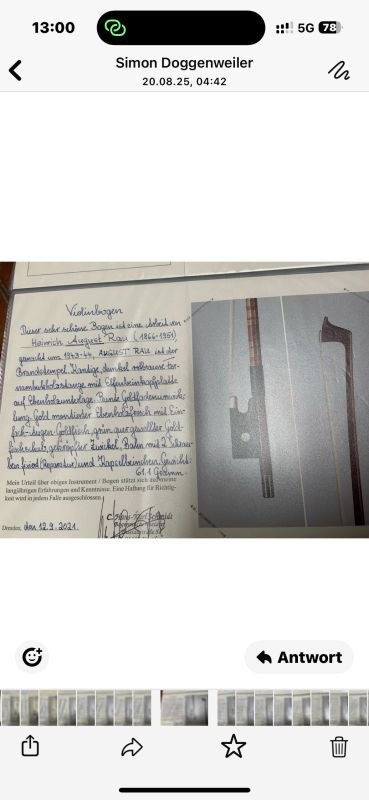 13:00
5G 78
Simon Doggenweiler
20.08.25, 04:42
Violinbogen
Dieser sehr schöne Bogen ist eine Arbeit von
Heinrich August Rau (1866-1951)
gemacht um 1943-44, AUGUST RAU ist der
Brandstempel. Kantige, dunkel rotbraune Fer-
nambukholzstange mit Elfenbeinkopfplatte
auf Ebenholzunterlage. Bunte
Gold montierter Ebenholzfrosch mit Ein-
fach-Augen Goldfisch, grün
Zwickel, Bahn mit 2 Schrau-
ben fixiert (Reparatur) und Kapselbeinchen. Gewicht:
61,1 Gramm.
Mein Urteil über obiges Instrument / Bogen stützt sich auf meine
langjährigen Erfahrungen und Kenntnisse. Eine Haftung für Richtig-
keit wird in jedem Falle ausgeschlossen.
Dresden, den 12.9.2021
Schmidt
Antwort